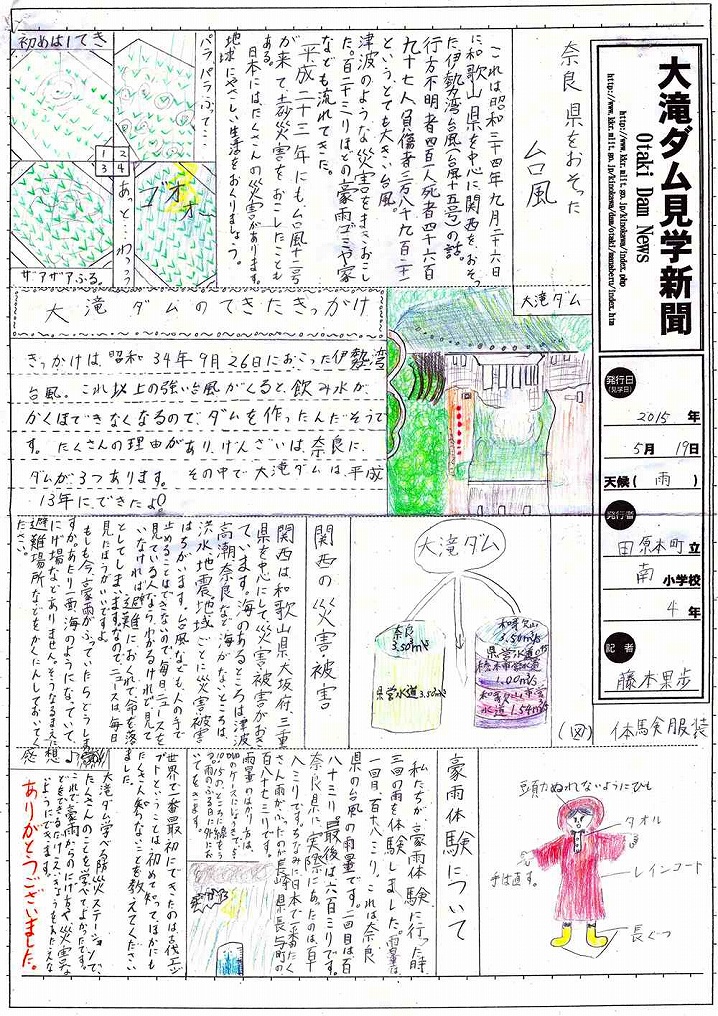 大滝ダム見学新聞
Otaki Dam News
http://www.kkr.mlit.go.jp/kinokawa/index.php
http://www.kkr.mlit.go.jp/kinokawa/dam/otaki/manaberu/index.htm
発行日
(見学日)
2015年
5月19日
天候(雨)
発行者
田原本町立
南小学校
4年
記者
藤本果歩
奈良県をおそった
台風
これは昭和三十四年九月二十六日
に和歌山県を中心に関西をおそっ
た伊勢湾台風(台風十五号)の話。
行方不明者四百一人死者四千六百
九十七人負傷者三万八千九百二十一
人というとても大きい台風。
津波のような災害をまきおこし
た。百二十三ミリほどの豪雨ゴミや家
なども流れてきた。
平成二十三年にも、台風十二号
が来て、土砂災害をおこしたことも
ある。
日本にはたくさんの災害があります。
地球にやさしい生活をおくりましょう。
初めは1てき
パラパラふって…
1
2
3
4
ザアザアふる。
あっと…わっつ
ゴオオー
大滝ダム
大滝ダムのできたきっかけ
きっかけは、昭和34年9月26日におこった伊勢湾
台風。これ以上の強い台風がくると、飲み水が
かくほできなくなるので、ダムを作ったんだそうで
す。たくさんの理由があり、げんざいは、奈良に、
ダムが3つあります。その中で大滝ダムは、平成
13年にできたよ。
大滝ダム
奈良
3.50㎥/s
県営水道3.50㎥/s
和歌山
3.50㎥/s
県営水道
橋本市営水道
1.00㎥/s
和歌山市営
水道1.54㎥/s
(図)
関西の災害被害
関西は、和歌山県大坂府、三重
県を中心にして、災害被害がおき
ています。海のあるところは津波、
高潮奈良など海がないところは、
洪水地震地域ごとに災害被害
はちがいます。台風なども人の手で
止めることはできないので毎日ニュースを
見ている人ならわかるけれど、見て
いなければ避難におくれて、命を落
としてしまいます。なので、ニュースは、毎日
見たほうがいいですよ。
もしも今、豪雨がふっていたらどうしま
すか。あたり一面海のようになっていて、
にげ場などありません。そうなるまえに
避難場所などをかくにんしておいてく
ださい。
体験服装
頭がぬれないようにひも
タオル
レインコート
手は直す。
長ぐつ
豪雨体験について
私たちが、豪雨体験に行った時、
三回の雨を体験しました。雨量は、
一回目、百十八ミリ。これは奈良
県の台風の雨量です。二回目は百
八十三ミリ。最後は六百ミリです。
奈良県に実際にあったのは、百十
八ミリです。ちなみに日本で一番たく
さん雨がふったのが長崎県長与町の
百八十七ミリです。
雨量のはかり方は、
感想♪
世界で一番最初にできたのは、古代エジ
プトということは、初めて知って、ほかにも
たくさん知らないことを教えてください
ました。
大滝ダム学べる防災ステーションで、
たくさんのことを学べてよかったです。
ありがとうございました。